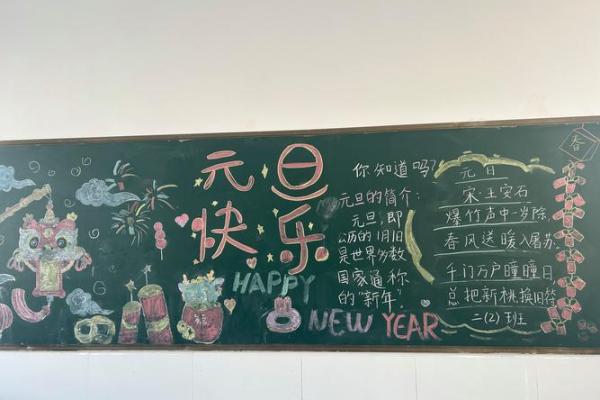 元旦
快乐
HAPPY
NEW YEAR
福
你知道吗?
元旦的简介:
元旦,即
公历的1月1日
是世界多数
国家通称
的"新年"。
元日
宋·王安石
爆竹声中一岁除,
春风送暖入屠苏。
千门万户曈曈日
总把新桃换旧符
二(2)班
春